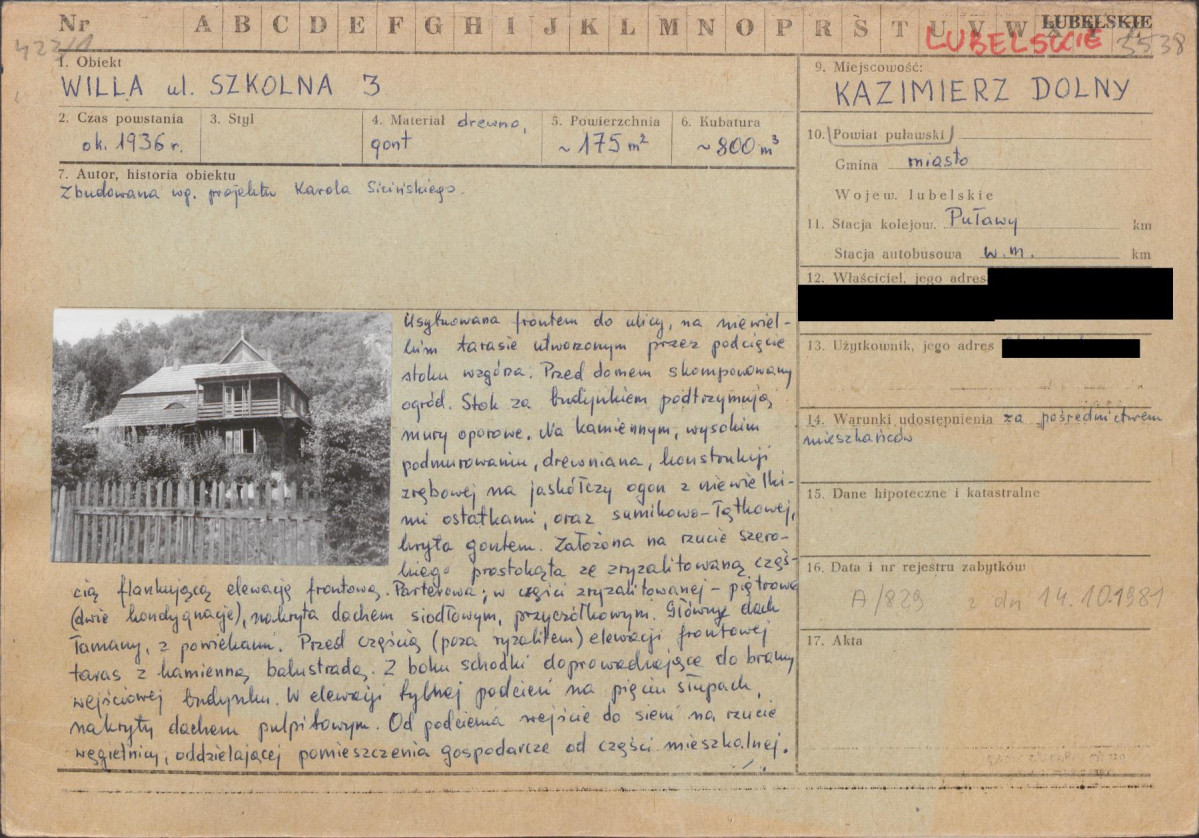 Nr A B C D E F G H I J K L M N O P R Ś T U V W LUBELSKIE
422/1 LUBELSKIE 3538
1. Obiekt
WILLA ul. SZKOLNA 3
2. Czas powstania
ok. 1936 r.
3. Styl
4. Materiał drewno,
gont
5. Powierzchnia
~ 175 m²
6. Kubatura
~ 800 m³
7. Autor, historia obiektu
Zbudowana wg. projektu Karola Sicińskiego.
Usytuowana frontem do ulicy, na niewiel-
kim tarasie utworzonym przez podcięcie
stoku wzgórza. Przed domem skomponowany
ogród. Stok za budynkiem podtrzymują
mury oporowe. Na kamiennym, wysokim
podmurowaniu, drewniana, konstrukcji
zrębowej na jaskółczy ogon z niewielki-
mi ostatkami, oraz sumikowo-łątkowej,
kryta gontem. Założona na rzucie szero-
kiego prostokąta ze zryzalitowaną częś-
cią flankującą elewację frontową. Parterowa; w części zryzalitowanej - piętrowa
(dwie kondygnacje), nakryta dachem siodłowym, przyczółkowym. Główny dach
łamany, z powiekami. Przed częścią (poza ryzalitem) elewacji frontowej
taras z kamienną balustradą. Z boku schodki doprowadzające do bramy
wejściowej budynku. W elewacji tylnej podcień na pięciu słupach,
nakryty dachem pulpitowym. Od podcienia wejście do sieni na rzucie
węgielnicy, oddzielającej pomieszczenia gospodarcze od części mieszkalnej.
9. Miejscowość:
KAZIMIERZ DOLNY
10. (Powiat puławski)
Gmina miasto
Wojew. lubelskie
11. Stacja kolejow. Puławy km
Stacja autobusowa w.m. km
12. Właściciel, jego adres
13. Użytkownik, jego adres
14. Warunki udostępnienia za pośrednictwem
mieszkańców
15. Dane hipoteczne i katastralne
16. Data i nr rejestru zabytków
A/829 z dn 14.10.1981
17. Akta